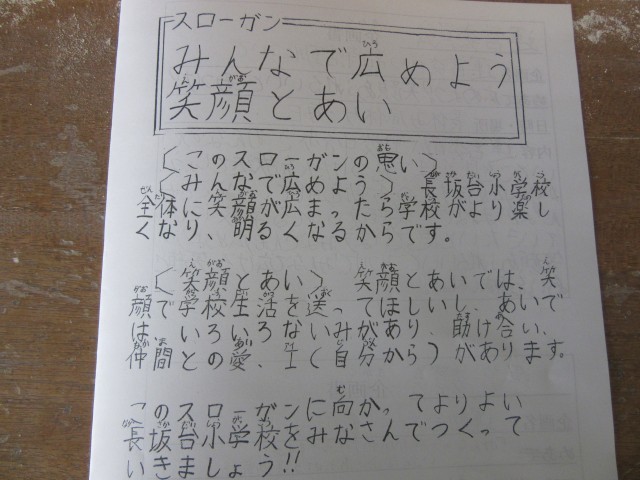 スローガン
みんなで広めよう
笑顔とあい
〈このスローガンの思い〉
〈みんなで広めよう〉長坂台小学校
全体に笑顔が広まったら学校がより楽し
くなり、明るくなるからです。
〈笑顔とあい〉 笑顔とあいでは、笑
顔で学校生活を送ってほしいし、あいで
は いろいろな みがあり、助け合い、
仲間との愛、I(自分から)があります。
このスローガンに向かってよりよい
長坂台小学校をみなさんでつくって
いきましょう!!